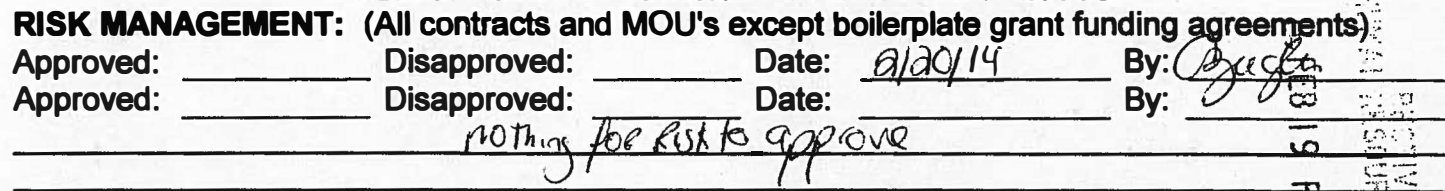 RISK MANAGEMENT: (All contracts and MOU's except boilerplate grant funding agreements)
Approved: Disapproved: Date: 2/20/14 By:
Approved: Disapproved: Date: By:
nothing for Risk to approve
FEB 19 P